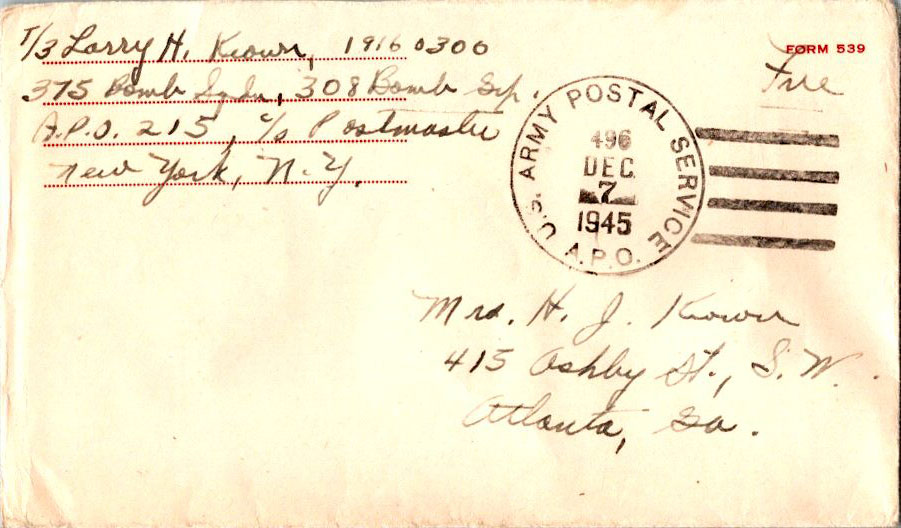 T/3 Larry H. Kiower, 19160300
375 Bomb Sqdn, 308 Bomb Grp.
A.P.O. 215, c/o Postmaster
New York, N.Y.
FORM 539
Free
U.S. ARMY POSTAL SERVICE
496
DEC
7
1945
A.P.O.
Mrs. H. J. Kiower
415 Ashby St., S.W.
Atlanta, Ga.